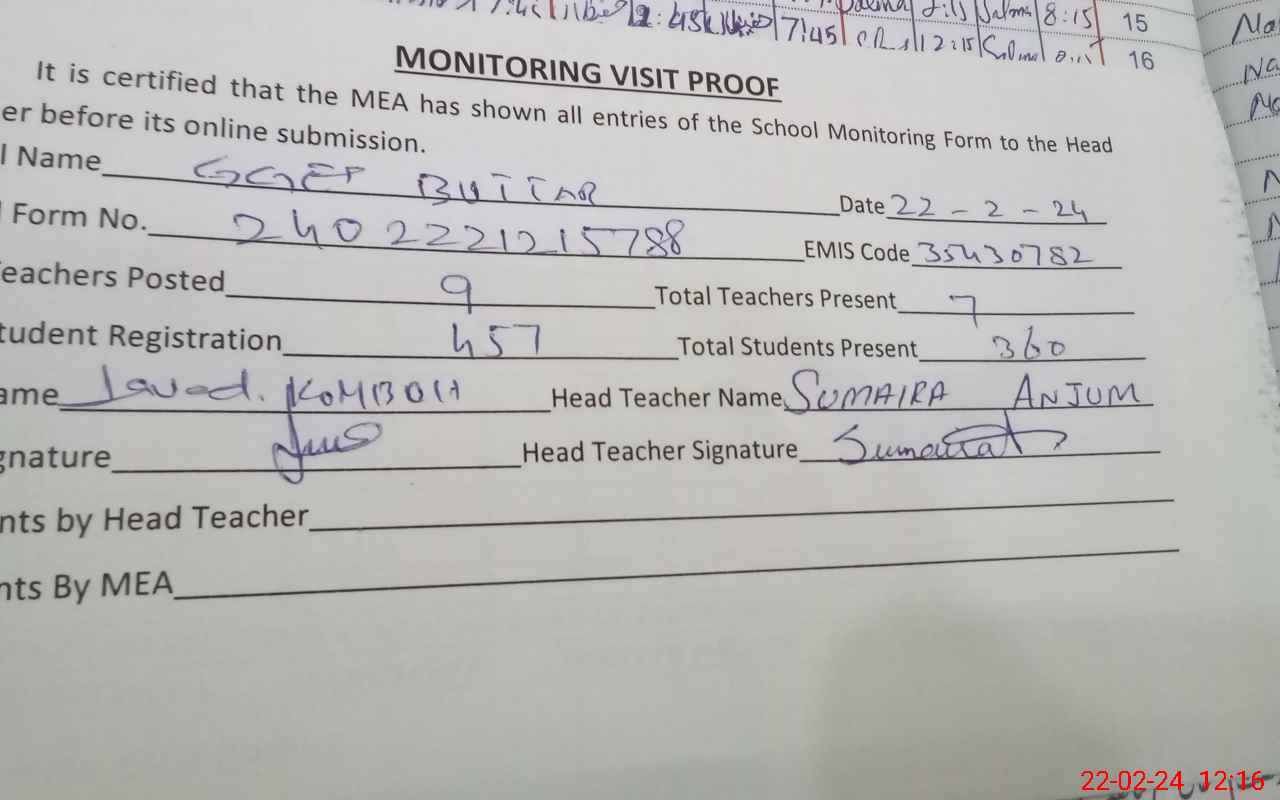 2:45 7:45 12:15 Salma 8:15 15
16
MONITORING VISIT PROOF
It is certified that the MEA has shown all entries of the School Monitoring Form to the Head
er before its online submission.
l Name GGEP BUTTAR Date 22-2-24
Form No. 2402221215788 EMIS Code 35430782
eachers Posted 9 Total Teachers Present 7
tudent Registration 457 Total Students Present 360
ame Javed. KOMBOH Head Teacher Name SUMAIRA ANJUM
gnature Head Teacher Signature Sumaira
nts by Head Teacher
nts By MEA
22-02-24 12:16